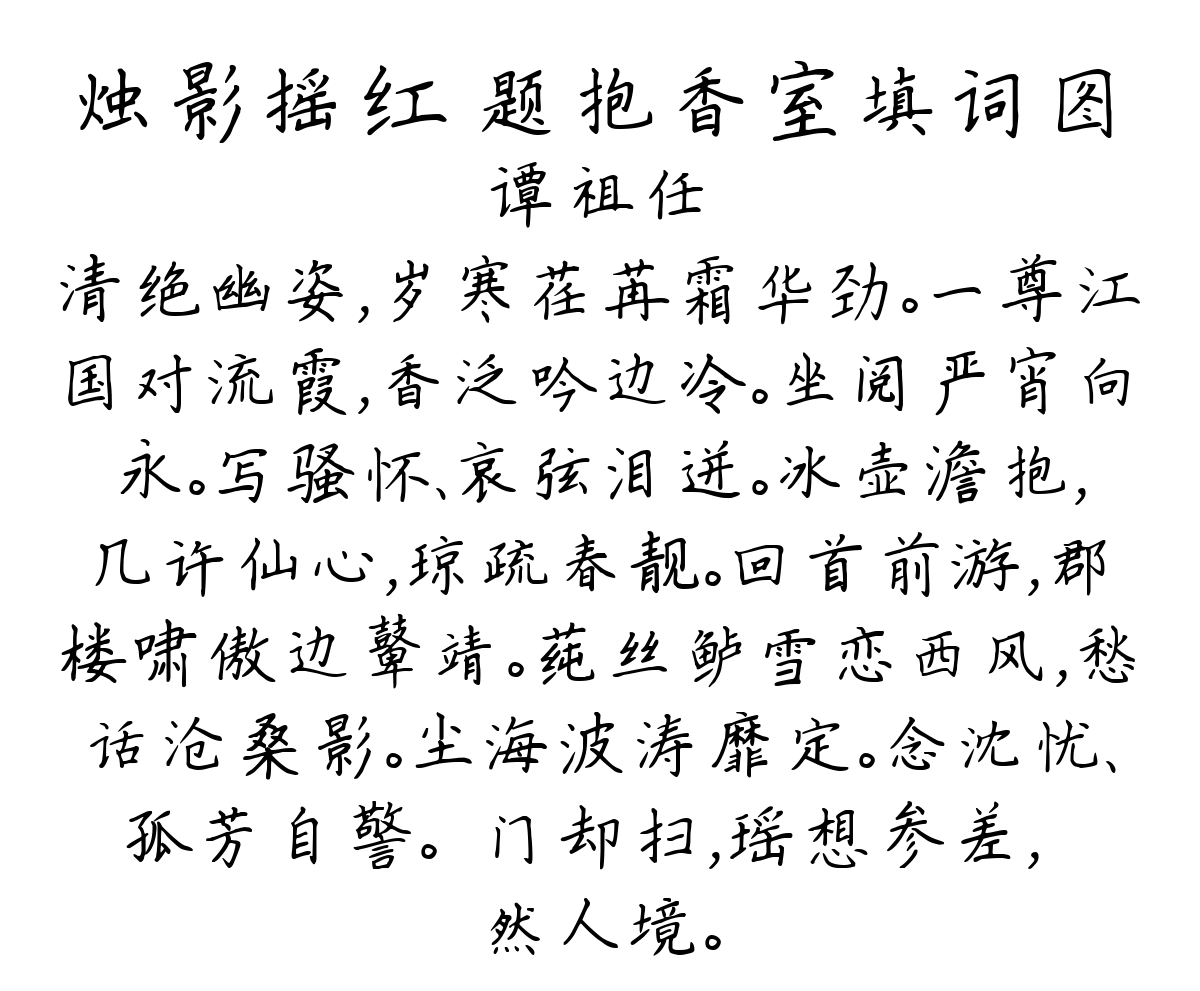 烛影摇红 题抱香室填词图
谭祖任
清绝幽姿,岁寒荏苒霜华劲。一尊江
国对流霞,香泛吟边冷。坐阅严宵向
永。写骚怀、哀弦泪迸。冰壶澹抱,
几许仙心,琼疏春靓。回首前游,郡
楼啸傲边鼙靖。莼丝鲈雪恋西风,愁
话沧桑影。尘海波涛靡定。念沈忧、
孤芳自警。 门却扫,瑶想参差,
然人境。